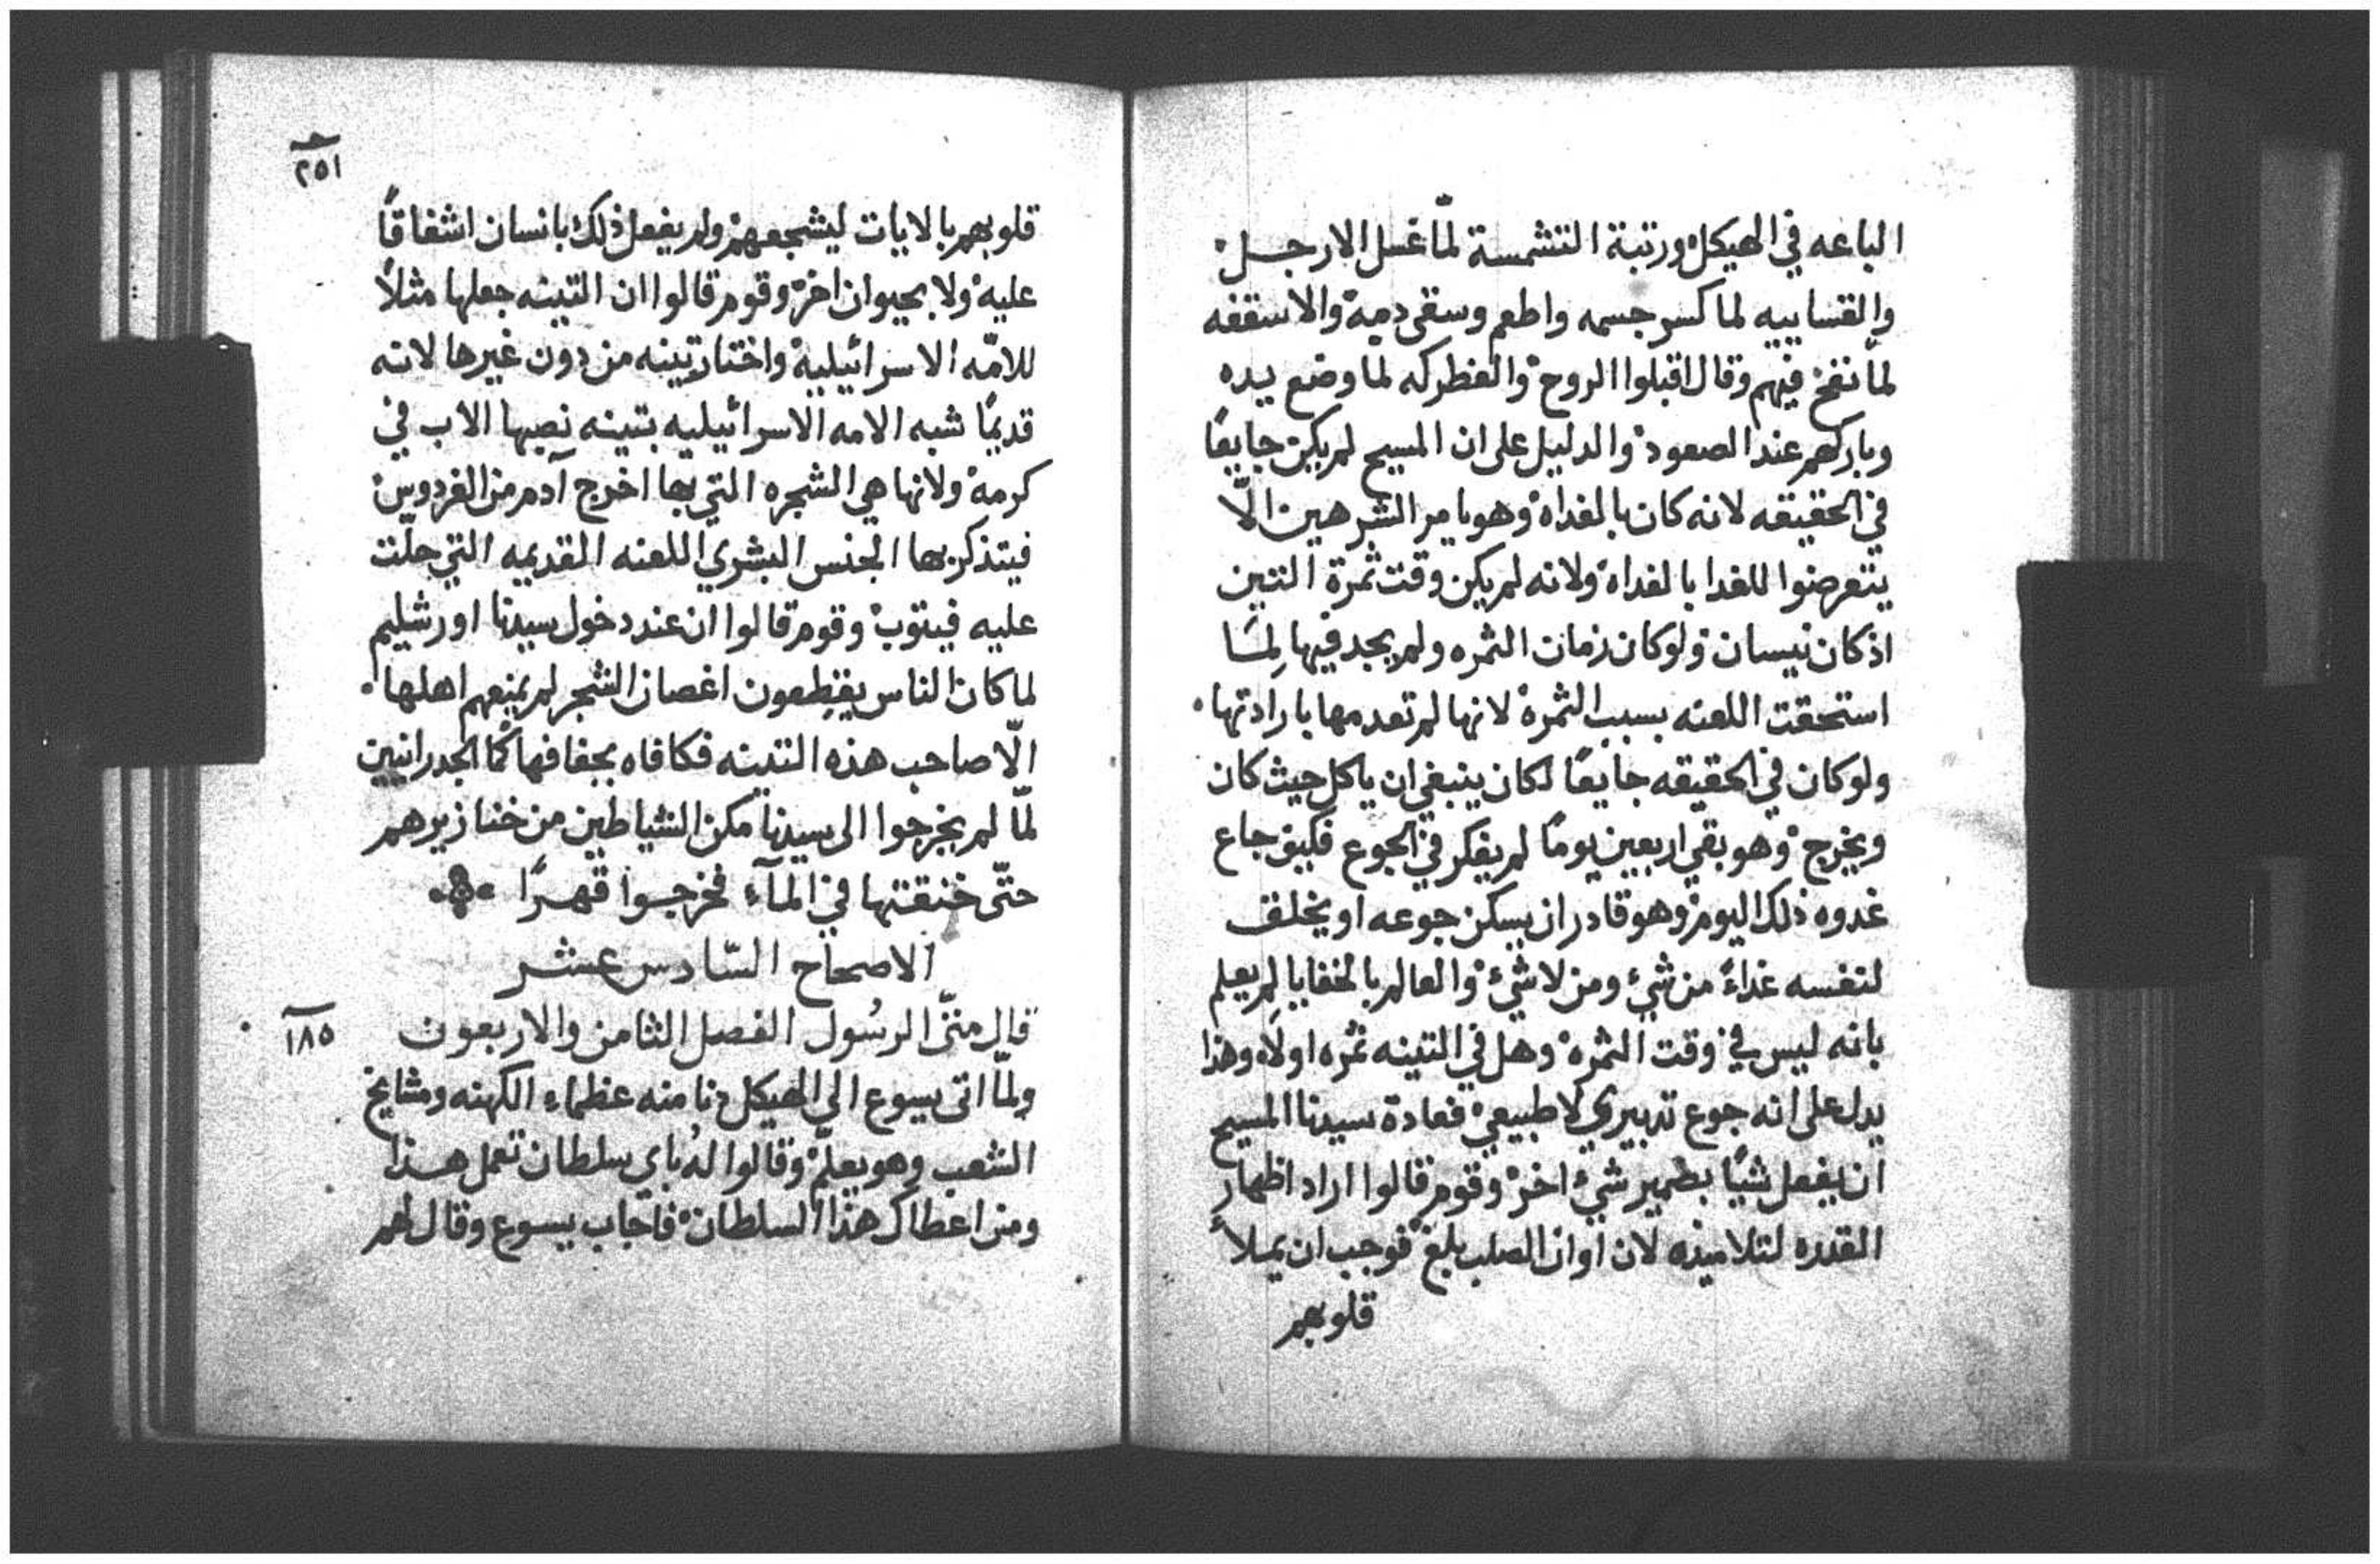 الباعه في الهيكل ورتبة التشمسة لمّا غسل الارجل
والقساييه لما كسر جسمه واطعم وسقى دمه والاسقفه
لمّا نفخ فيهم وقال اقبلوا الروح والفطركه لما وضع يده
وباركهم عند الصعود والدليل على ان المسيح لم يكن جايعًا
في الحقيقه لانه كان بالغداه وهو يامر الشرهين الّا
يتعرضوا للغدا بالغداه ولانه لم يكن وقت ثمرة التين
اذ كان نيسان ولو كان زمان الثمره ولم يجد فيها لِمَا
استحقت اللعنه بسبب الثمره لانها لم تعدمها بارادتها
ولو كان في الحقيقه جايعًا لكان ينبغي ان ياكل حيث كان
ويخرج وهو بقي اربعين يومًا لم يفكر في الجوع فكيف جاع
غدوه ذلك اليوم وهو قادر ان يسكن جوعه او يخلف
لنفسه غداءً من شيء ومن لا شيء والعالم بالخفايا لِم يعلم
بانه ليس في وقت الثمره وهل في التينه ثمره اولًا وهذا
يدل على انه جوع تدبيري لا طبيعي فعادة سيدنا المسيح
ان يفعل شيًا بضمير شيء اخر وقوم قالوا اراد اظهار
القدره لتلاميذه لان اوان الصلب بلغ فوجب ان يملأ
قلوبهم
٢٥١
قلوبهم بالايات ليشجعهم ولم يفعل ذلك بانسان اشفاقًا
عليه ولا بحيوان اخر وقوم قالوا ان التينه جعلها مثلًا
للامّه الاسرائيلية واختار تينه من دون غيرها لانه
قديمًا شبه الامه الاسرائيليه بتينه نصبها الاب في
كرمه ولانها هي الشجره التي بها اخرج آدم من الفردوس
فيتذكر بها الجنس البشري اللعنه القديمه التي حلّت
عليه فيتوب وقوم قالوا ان عند دخول سيدنا اورشليم
لما كان الناس يقطعون اغصان الشجر لم يمنعهم اهلها
الّا صاحب هذه التينه فكافاه بجفافها كما الجدرانيين
لمّا لم يخرجوا الى سيدنا مكن الشياطين من خنازيرهم
حتّى خنقتها في المآء فخرجوا قهرًا
الاصحاح السّادس عشر
قال متّى الرسُول الفصل الثامن والاربعون
١٨٥
ولمّا اتى يسوع الى الهيكل دنا منه عظماء الكهنه ومشايخ
الشعب وهو يعلّم وقالوا لهُ باى سلطان تعمل هذا
ومن اعطاك هذا السلطان فاجاب يسوع وقال لهم